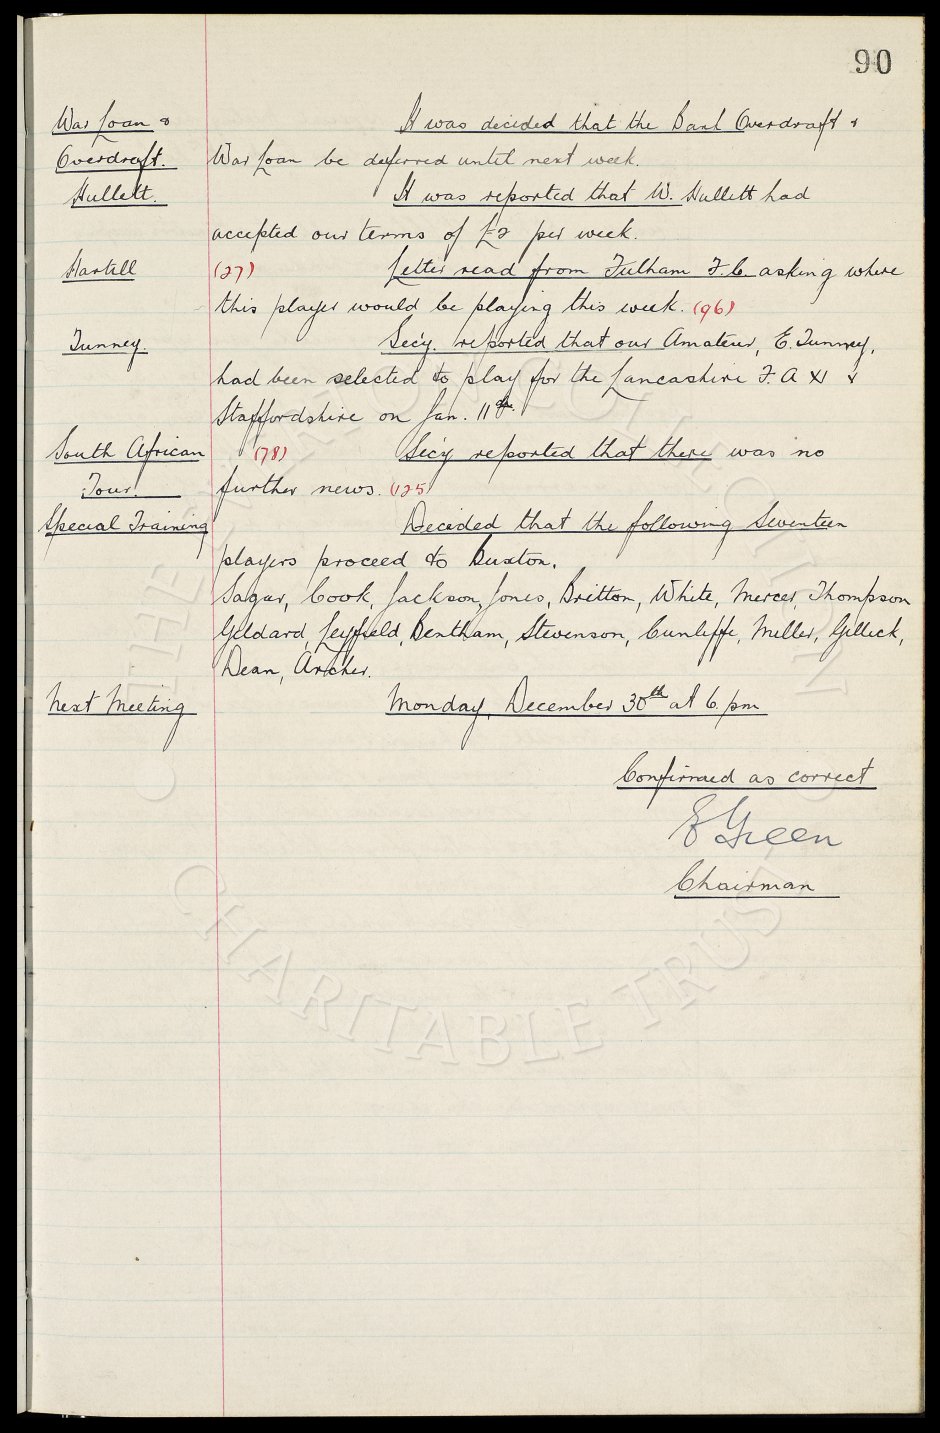 90
War Loan & It was decided that the Bank Overdraft &
Overdraft. War Loan be deferred until next week.
Hullett. It was reported that W. Hullett had
accepted our terms of £2 per week.
Hartill (27) Letter read from Fulham F.C. asking where
this player would be playing this week. (96)
Tunney. Sec'y. reported that our Amateur, E. Tunney,
had been selected to play for the Lancashire F.A XI &
Staffordshire on Jan. 11th.
South African (78) Sec'y reported that there was no
Tour. further news. (125)
Special Training Decided that the following Seventeen
players proceed to Buxton.
Sagar, Cook, Jackson, Jones, Britton, White, Mercer, Thompson
Geldard, Leyfield, Bentham, Stevenson, Cunliffe, Miller, Gillick,
Dean, Archer.
Next Meeting Monday, December 30th at 6. pm
Confirmed as correct
E Green
Chairman
THE EVERTON COLLECTION
CHARITABLE TRUST